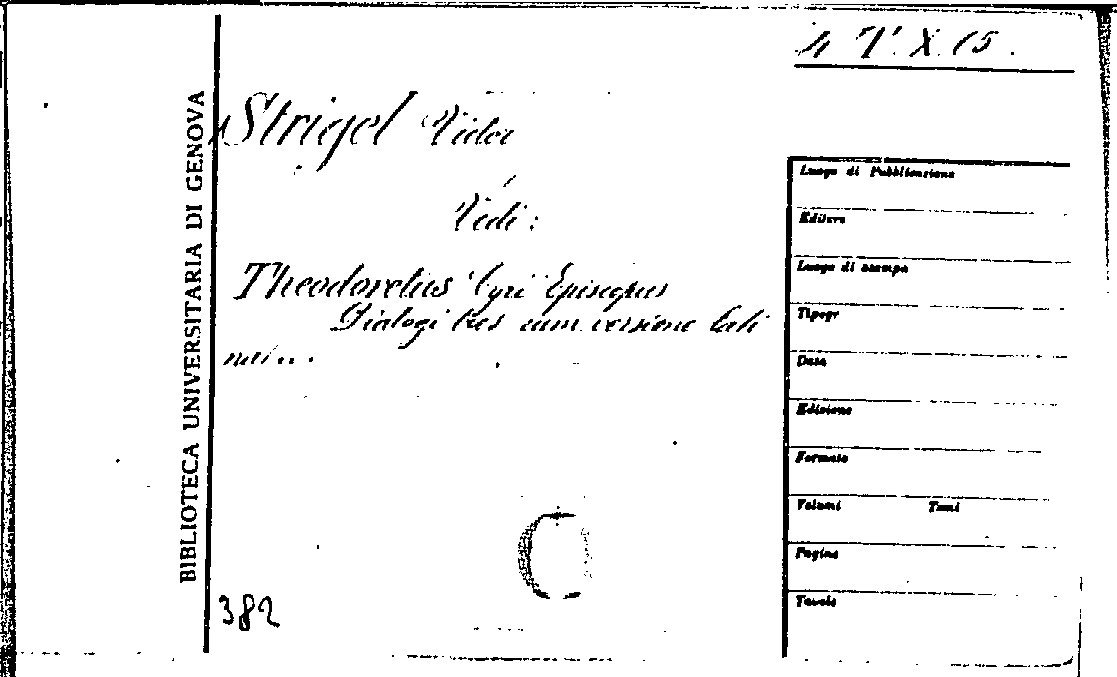 4 T. X. 15.
BIBLIOTECA UNIVERSITARIA DI GENOVA
Strigel Victor
Vedi:
Theodoretus Cyri Episcopus
Dialogi tres cum versione lati
na...
382
Luogo di Pubblicazione
Editore
Luogo di stampa
Tipogr
Data
Edizione
Formato
Volumi Tomi
Pagine
Tavole